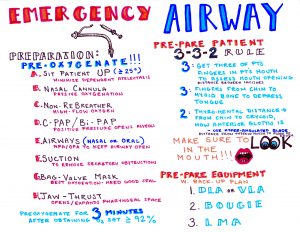 EMERGENCY AIRWAY
PREPARATION:
PRE-OXYGENATE!!!
A. SIT PATIENT UP (≥25°)
MINIMIZE DEPENDENT ATELECTASIS
B. NASAL CANNULA
PASSIVE OXYGENATION
C. NON-REBREATHER
HIGH-FLOW OXYGEN
D. C-PAP/BI-PAP
POSITIVE PRESSURE OPENS ALVEOLI
E. AIRWAYS (NASAL OR ORAL)
MAINTAIN TO KEEP AIRWAY OPEN
F. SUCTION
TO REMOVE SECRETORY OBSTRUCTION
G. BAG-VALVE MASK
BEST OXYGENATION: NEED GOOD SEAL
H. JAW-THRUST
OPENS/EXPANDS PHARYNGEAL SPACE
PREOXYGENATE FOR 3 MINUTES
AFTER OBTAINING O2 SAT ≥ 92%
PRE-PARE PATIENT
3-3-2 RULE
3: GET THREE OF PTS
FINGERS IN PTS MOUTH
TO ASSESS MOUTH OPENING
DISTANCE BETWEEN INCISORS
3: FINGERS FROM CHIN TO
HYOID BONE TO DEPRESS
TONGUE
2: THYRO-MENTAL DISTANCE
FROM CHIN TO CRICOID,
HOW ANTERIOR GLOTTIS IS
- USE HYPER-ANGULATED BLADE
MAKE SURE TO LOOK
IN THE
MOUTH!!!
PRE-PARE EQUIPMENT
W. BACK-UP PLAN
1. DLA OR VLA
2. BOUGIE
3. LMA